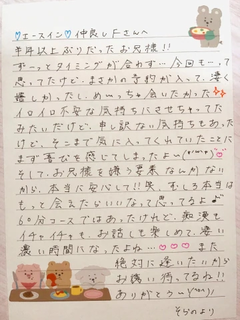 ♡エースイン♡仲良しFさんへ
半年以上ぶりだったお兄様!!
ずーっとタイミングが合わず…今回も…って
思ってたけど、まさかの予約が入って、凄く
嬉しかったし、めぃっちゃ会いたかった
イロイロ不安な気持ちにさせちゃってた
みたいだけど、申し訳ない気持ちもあった
けど、そこまで気に入ってくれていたことに
まず喜びを感じてしまったよ
そして、お兄様を嫌う要素なんかない
から、本当に安心して!!笑、むしろ本当は
もっと会えたらいいなって思ってるよ
60分コースではあったけれど、痴漢も
イチャイチャも、お話しも楽しめて、凄い
濃い時間になったよね…♡♡♡ また
絶対に逢いたいから
お誘い待ってるね!!
ありがとう
そらのより